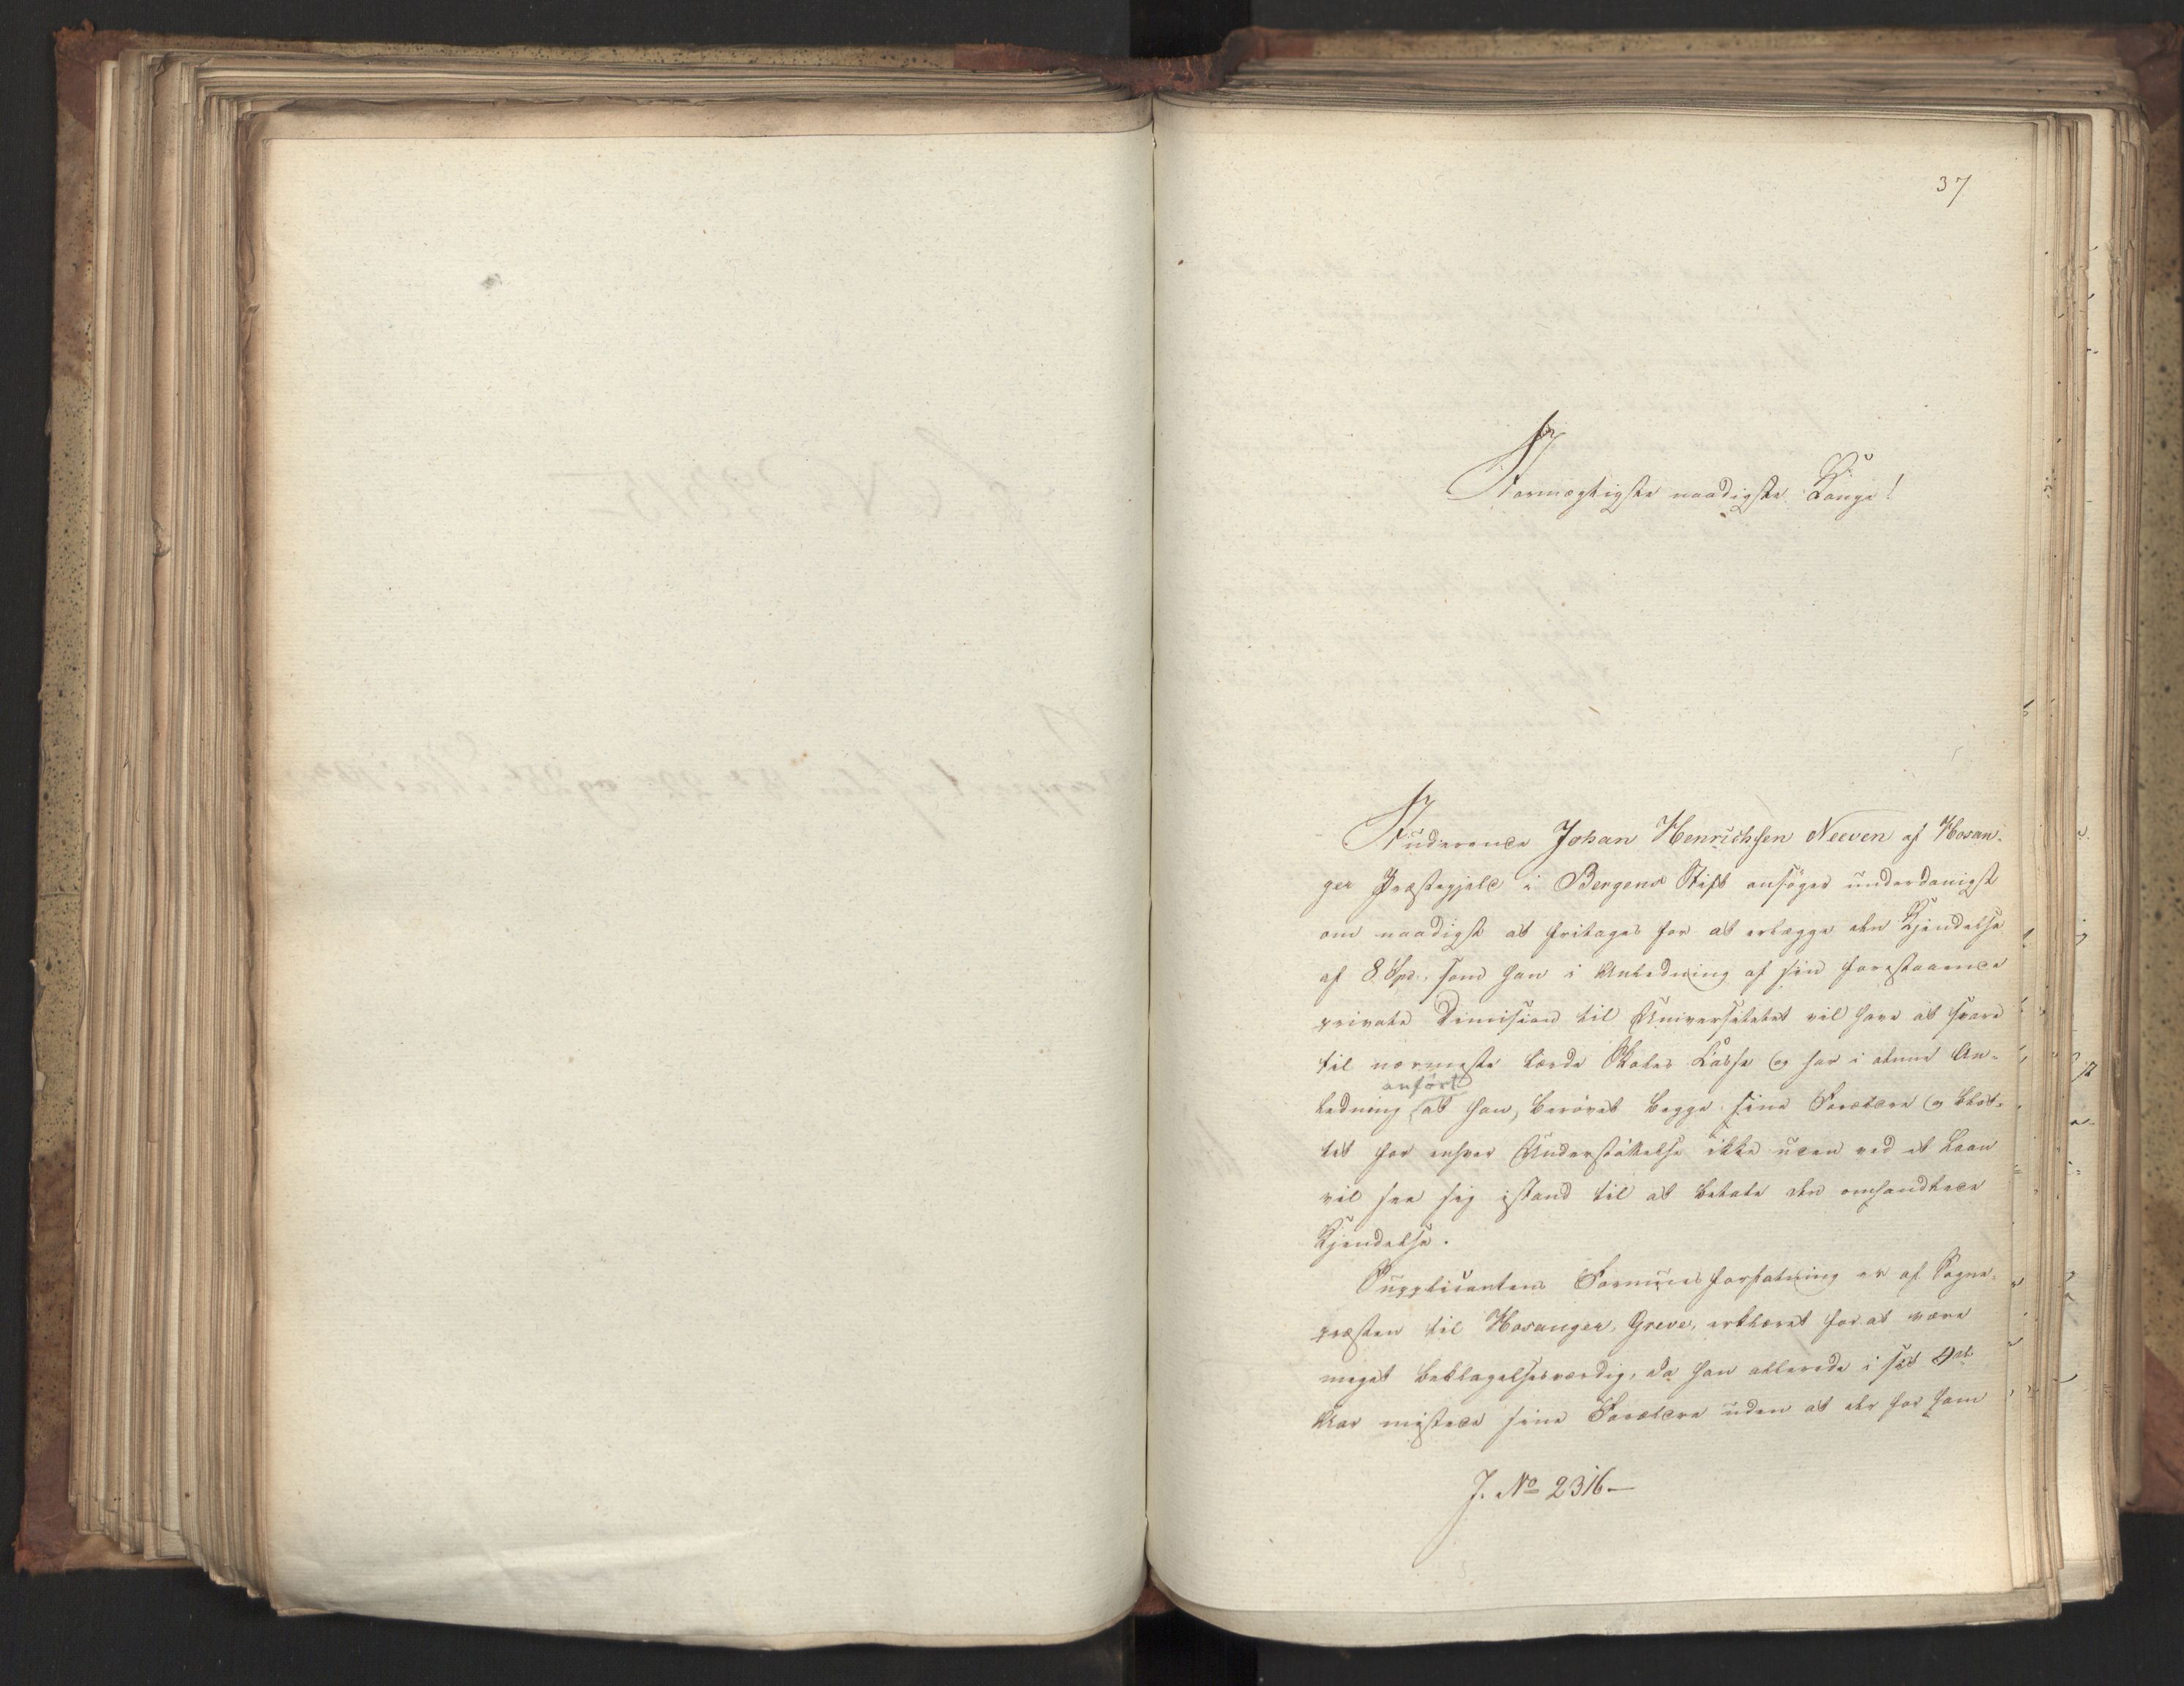 37
Stormægtigste naadigste Konge!
Studerende Johan Henrichsen Neeven af Hosan-
ger Præstegjeld i Bergens Stift ansøger underdanigst
om naadigst at fritages for at erlægge den Kjendelse
af 8 Spd., som han i Anledning af sin forestaaende
private Dimission til Universitetet vil have at svare
til nærmeste lærde Skoles Casse og har i denne An-
anført
ledning at han, berøvet begge sine Forældre og blot-
tet for enhver Understøttelse ikke uden ved et Laan
vil see sig istand til at betale den omhandlede
Kjendelse.
Supplicantens Formues forfatning er af Sogne-
præsten til Hosanger, Greve, erklæret for at være
meget beklagelsesværdig, da han allerede i sit 4de
Aar mistede sine Forældre uden at der for ham
J. No 2316-